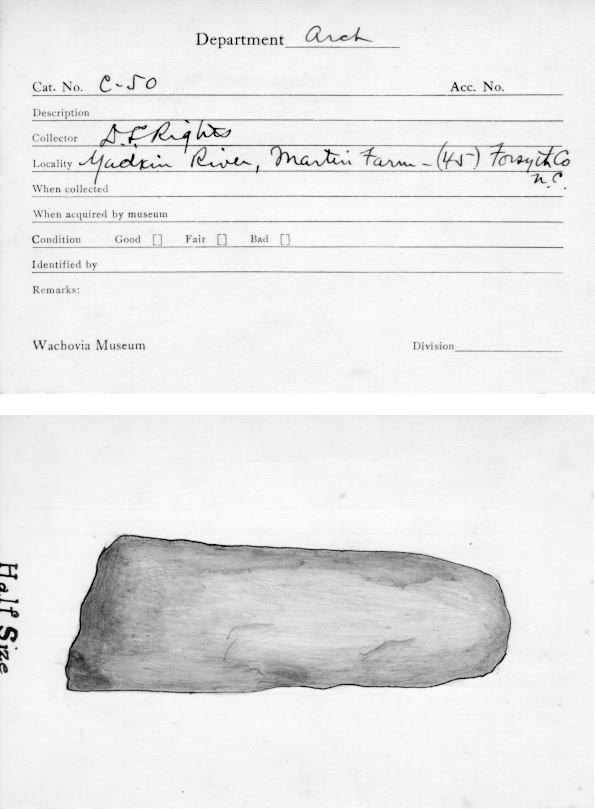 Department Arch
Cat. No. C-50 Acc. No.
Description
Collector D.L. Rights
Locality Yadkin River, Martin Farm - (45) Forsyth Co
N.C.
When collected
When acquired by museum
Condition Good [] Fair [] Bad []
Identified by
Remarks:
Wachovia Museum Division
Half Size